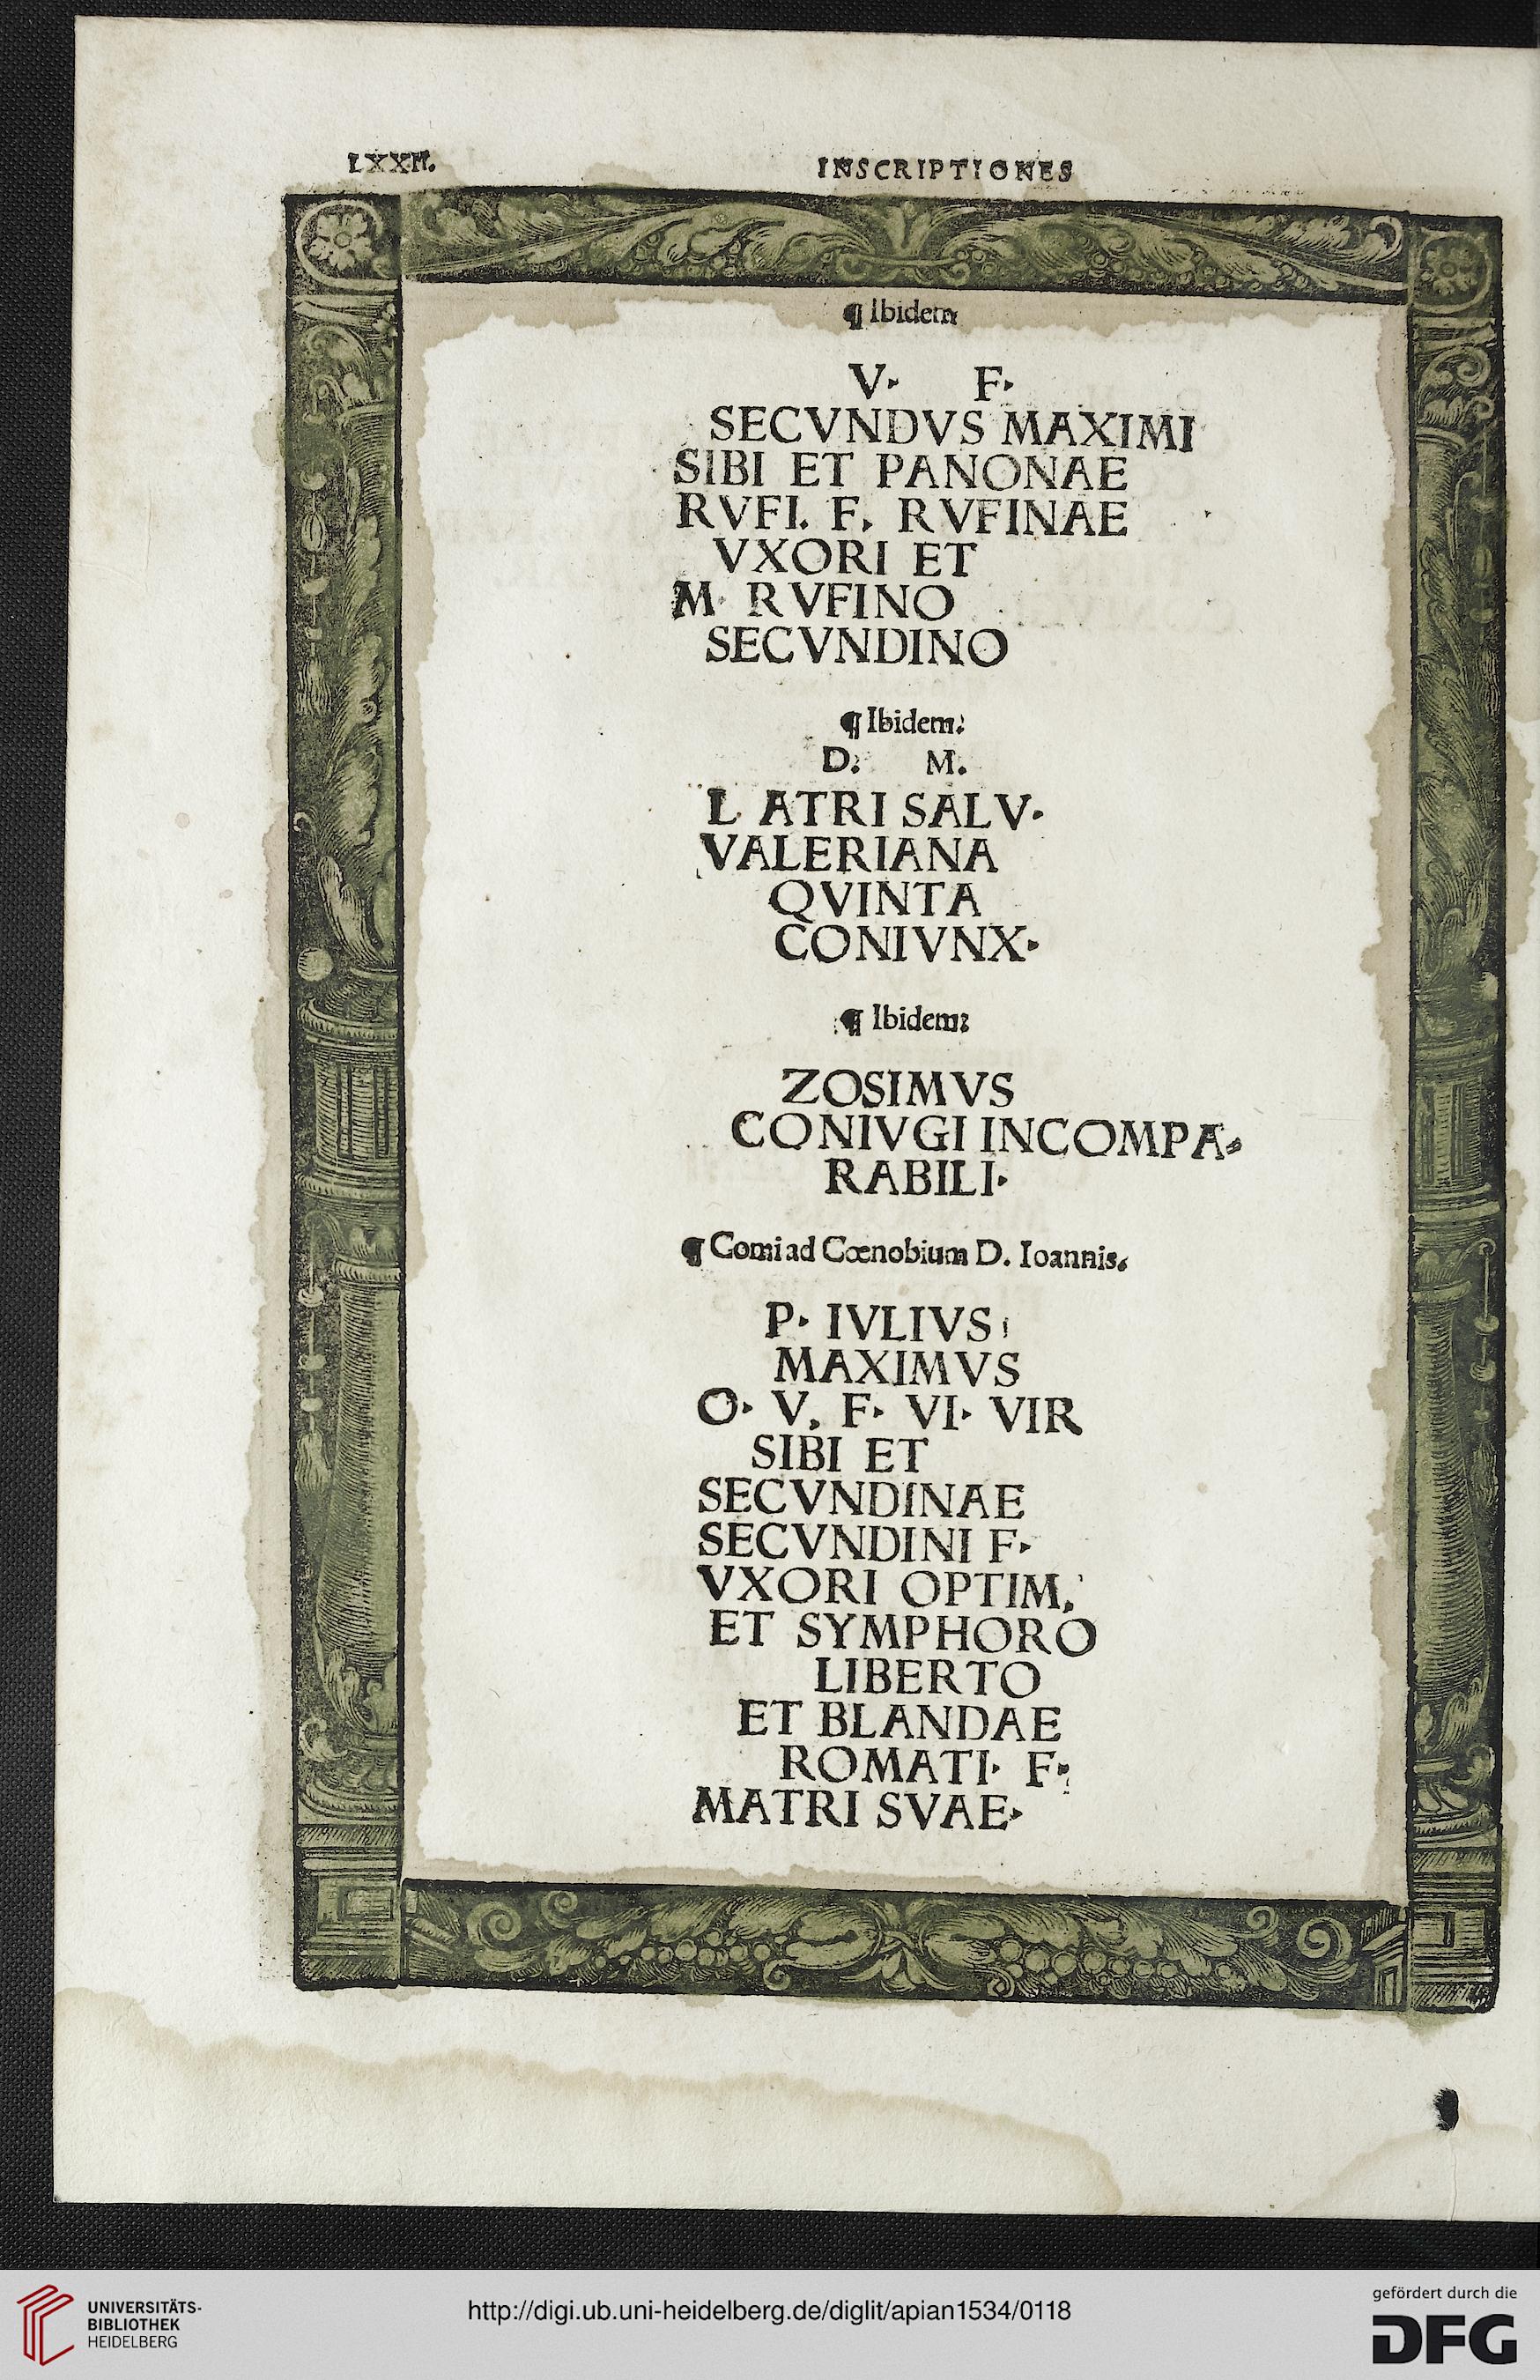 LXXII.
INSCRIPTIONES
¶ Ibidem
V. F.
SECVNDVS MAXIMI
SIBI ET PANONAE
RVFI. F. RVFINAE
VXORI ET
M. RVFINO
SECVNDINO
¶ Ibidem.
D. M.
L ATRI SALV.
VALERIANA
QVINTA
CONIVNX.
¶ Ibidem:
ZOSIMVS
CONIVGI INCOMPA⸗
RABILI.
¶ Comi ad Cœnobium D. Ioannis.
P. IVLIVS
MAXIMVS
O. V. F. VI. VIR
SIBI ET
SECVNDINAE
SECVNDINI F.
VXORI OPTIM.
ET SYMPHORO
LIBERTO
ET BLANDAE
ROMATI. F.
MATRI SVAE.
UNIVERSITÄTS-
BIBLIOTHEK
HEIDELBERG
http://digi.ub.uni-heidelberg.de/diglit/apian1534/0118
gefördert durch die
DFG